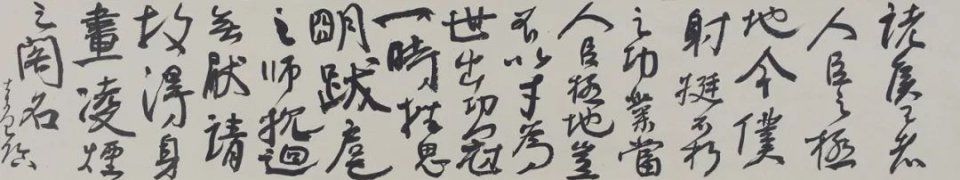 諸侯王者
人臣之極
地今僕
射挺不朽
之功業當
人臣極地豈
不以才為
世出功冠
一時挫思
明跋扈
之師抗迴
無厭請
故得身
畫凌煙
之閣名